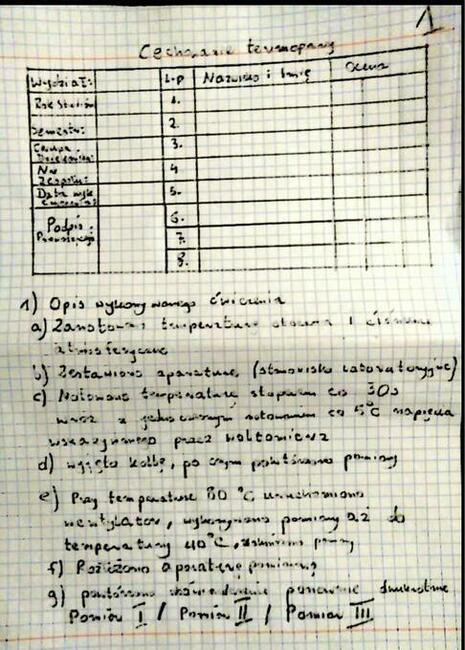 1
Cechowanie termopary
Wydział: L.p Nazwisko i Imię Ocena
Rok Studiów 1.
Semestr: 2.
Grupa 3.
Dziekańska:
Nr 4.
Zespołu:
Data wyk. 5.
Podpis 6.
7.
8.
1) Opis wykonywanego ćwiczenia
a) Zanotowano temperaturę otoczenia i ciśnienie
atmosferyczne
b) Zestawiono aparaturę (stanowisko laboratoryjne)
c) Notowano temperaturę stopem co 30s
wraz z notowaniem co 5°C napięcia
wskazywanego przez woltomierz
d) wyjęto kolbę, po czym powtórzono pomiary
e) Przy temperaturze 80 °C uruchomiono
wentylator, wykonywano pomiary aż do
temperatury 40°C,
f) Rozłożono aparaturę pomiarową
g) powtórzono doświadczenie ponownie dwukrotnie
Pomiar I / Pomiar II / Pomiar III